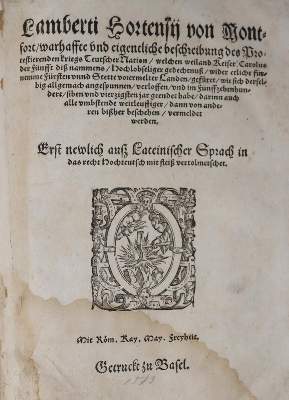 Lamberti Hortensij von Mont-
fort / warhaffte vnd eigentliche beschreibung des Pro-
testierenden kriegs Teutscher Nation / welchen weiland Keiser Carolus
der fünfft diß nammens / Hochlobseliger gedechtnuß / wider etliche für-
nemme Fürsten vnnd Stette vorermelter Landen / gefüret / wie sich dersel-
big allgemach angespunnen / verloffen / vnd im Fünfftzehenhun-
dert / siben vnd viertzigsten jar geendet habe / darinn auch
alle vmbstende weitleuffiger / dann von ande-
ren bißher beschehen / vermeldet
werden.
Erst newlich auß Lateinischer Sprach in
das recht Hochteutsch mit fleiß vertolmetschet.
Mit Röm. Kay. May. Freyheit.
Getruckt zu Basel.